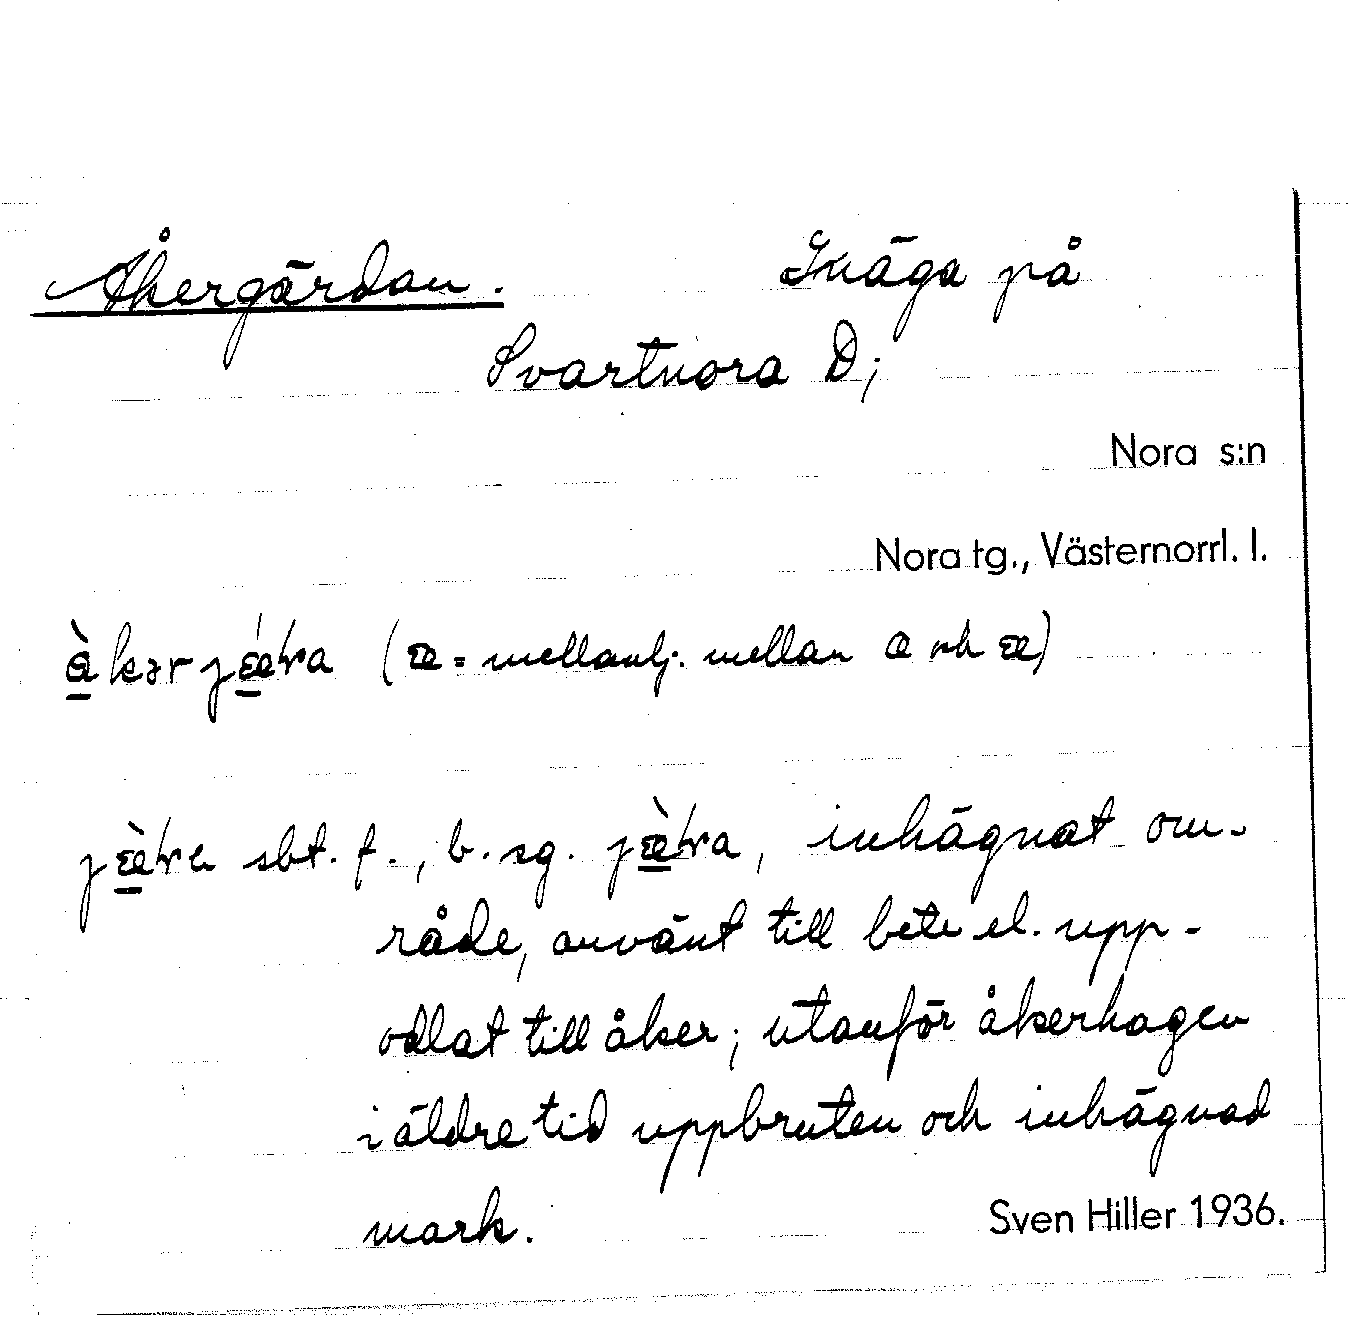 Åkergärdan. Inäga på
Svartnora D;
Nora s:n
Nora tg., Västernorrl. l.
(æ = mellanlj. mellan a och æ)
sbt. f., b. sg. inhägnat om-
råde, använt till bete el. upp-
odlat till åker; utanför åkerhagen
i äldre tid uppbruten och inhägnad
mark. Sven Hiller 1936.